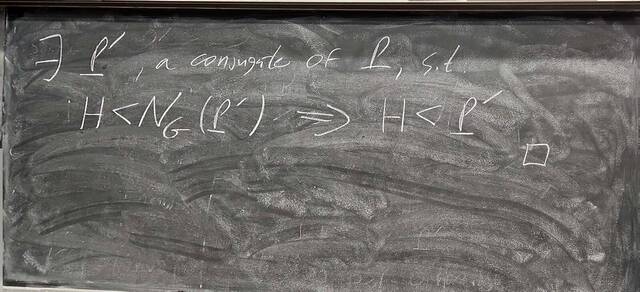 ∃ P', a conjugate of P, s.t.
H < N_G(P') ⟹ H < P'
□